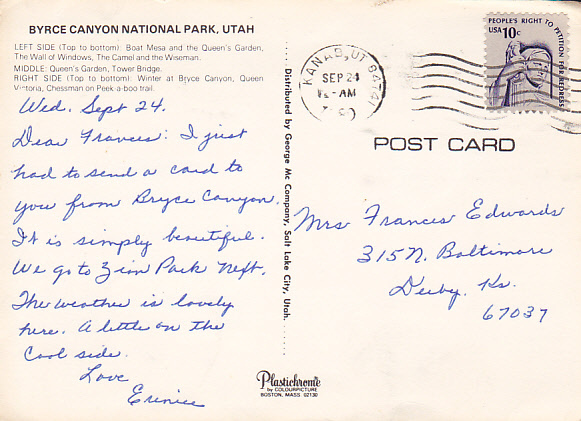 BYRCE CANYON NATIONAL PARK, UTAH
LEFT SIDE (Top to bottom): Boat Mesa and the Queen's Garden,
The Wall of Windows, The Camel and the Wiseman.
MIDDLE: Queen's Garden, Tower Bridge.
RIGHT SIDE (Top to bottom): Winter at Bryce Canyon, Queen
Victoria, Chessman on Peek-a-boo trail.
Wed. Sept 24.
Dear Frances: I just
had to send a card to
you from Bryce Canyon.
It is simply beautiful.
We go to Zion Park next.
The weather is lovely
here. A little on the
cool side.
Love
Erenice
Distributed by George Mc Company, Salt Lake City, Utah.
Plastichrome
by COLOURPICTURE
BOSTON, MASS 02130
KANAB, UT 84741
SEP 24
AM
PEOPLE'S RIGHT TO PETITION FOR REDRESS
USA 10c
POST CARD
Mrs Frances Edwards
315 N. Baltimore
Derby, Ks.
67037